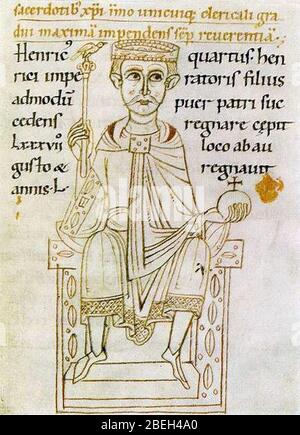 sacerdotib; xp̄i īmo unicuiq; clericali gra
dui maximā impendens sēp reverentiā:
Henric' quartus hen
rici impe ratoris filius
admodū puer patri suc
cedens regnare cępit
lxxxvii loco ab au
gusto & regnavit
annis · L ·
alamy
Image ID: 2BEH4A0
www.alamy.com